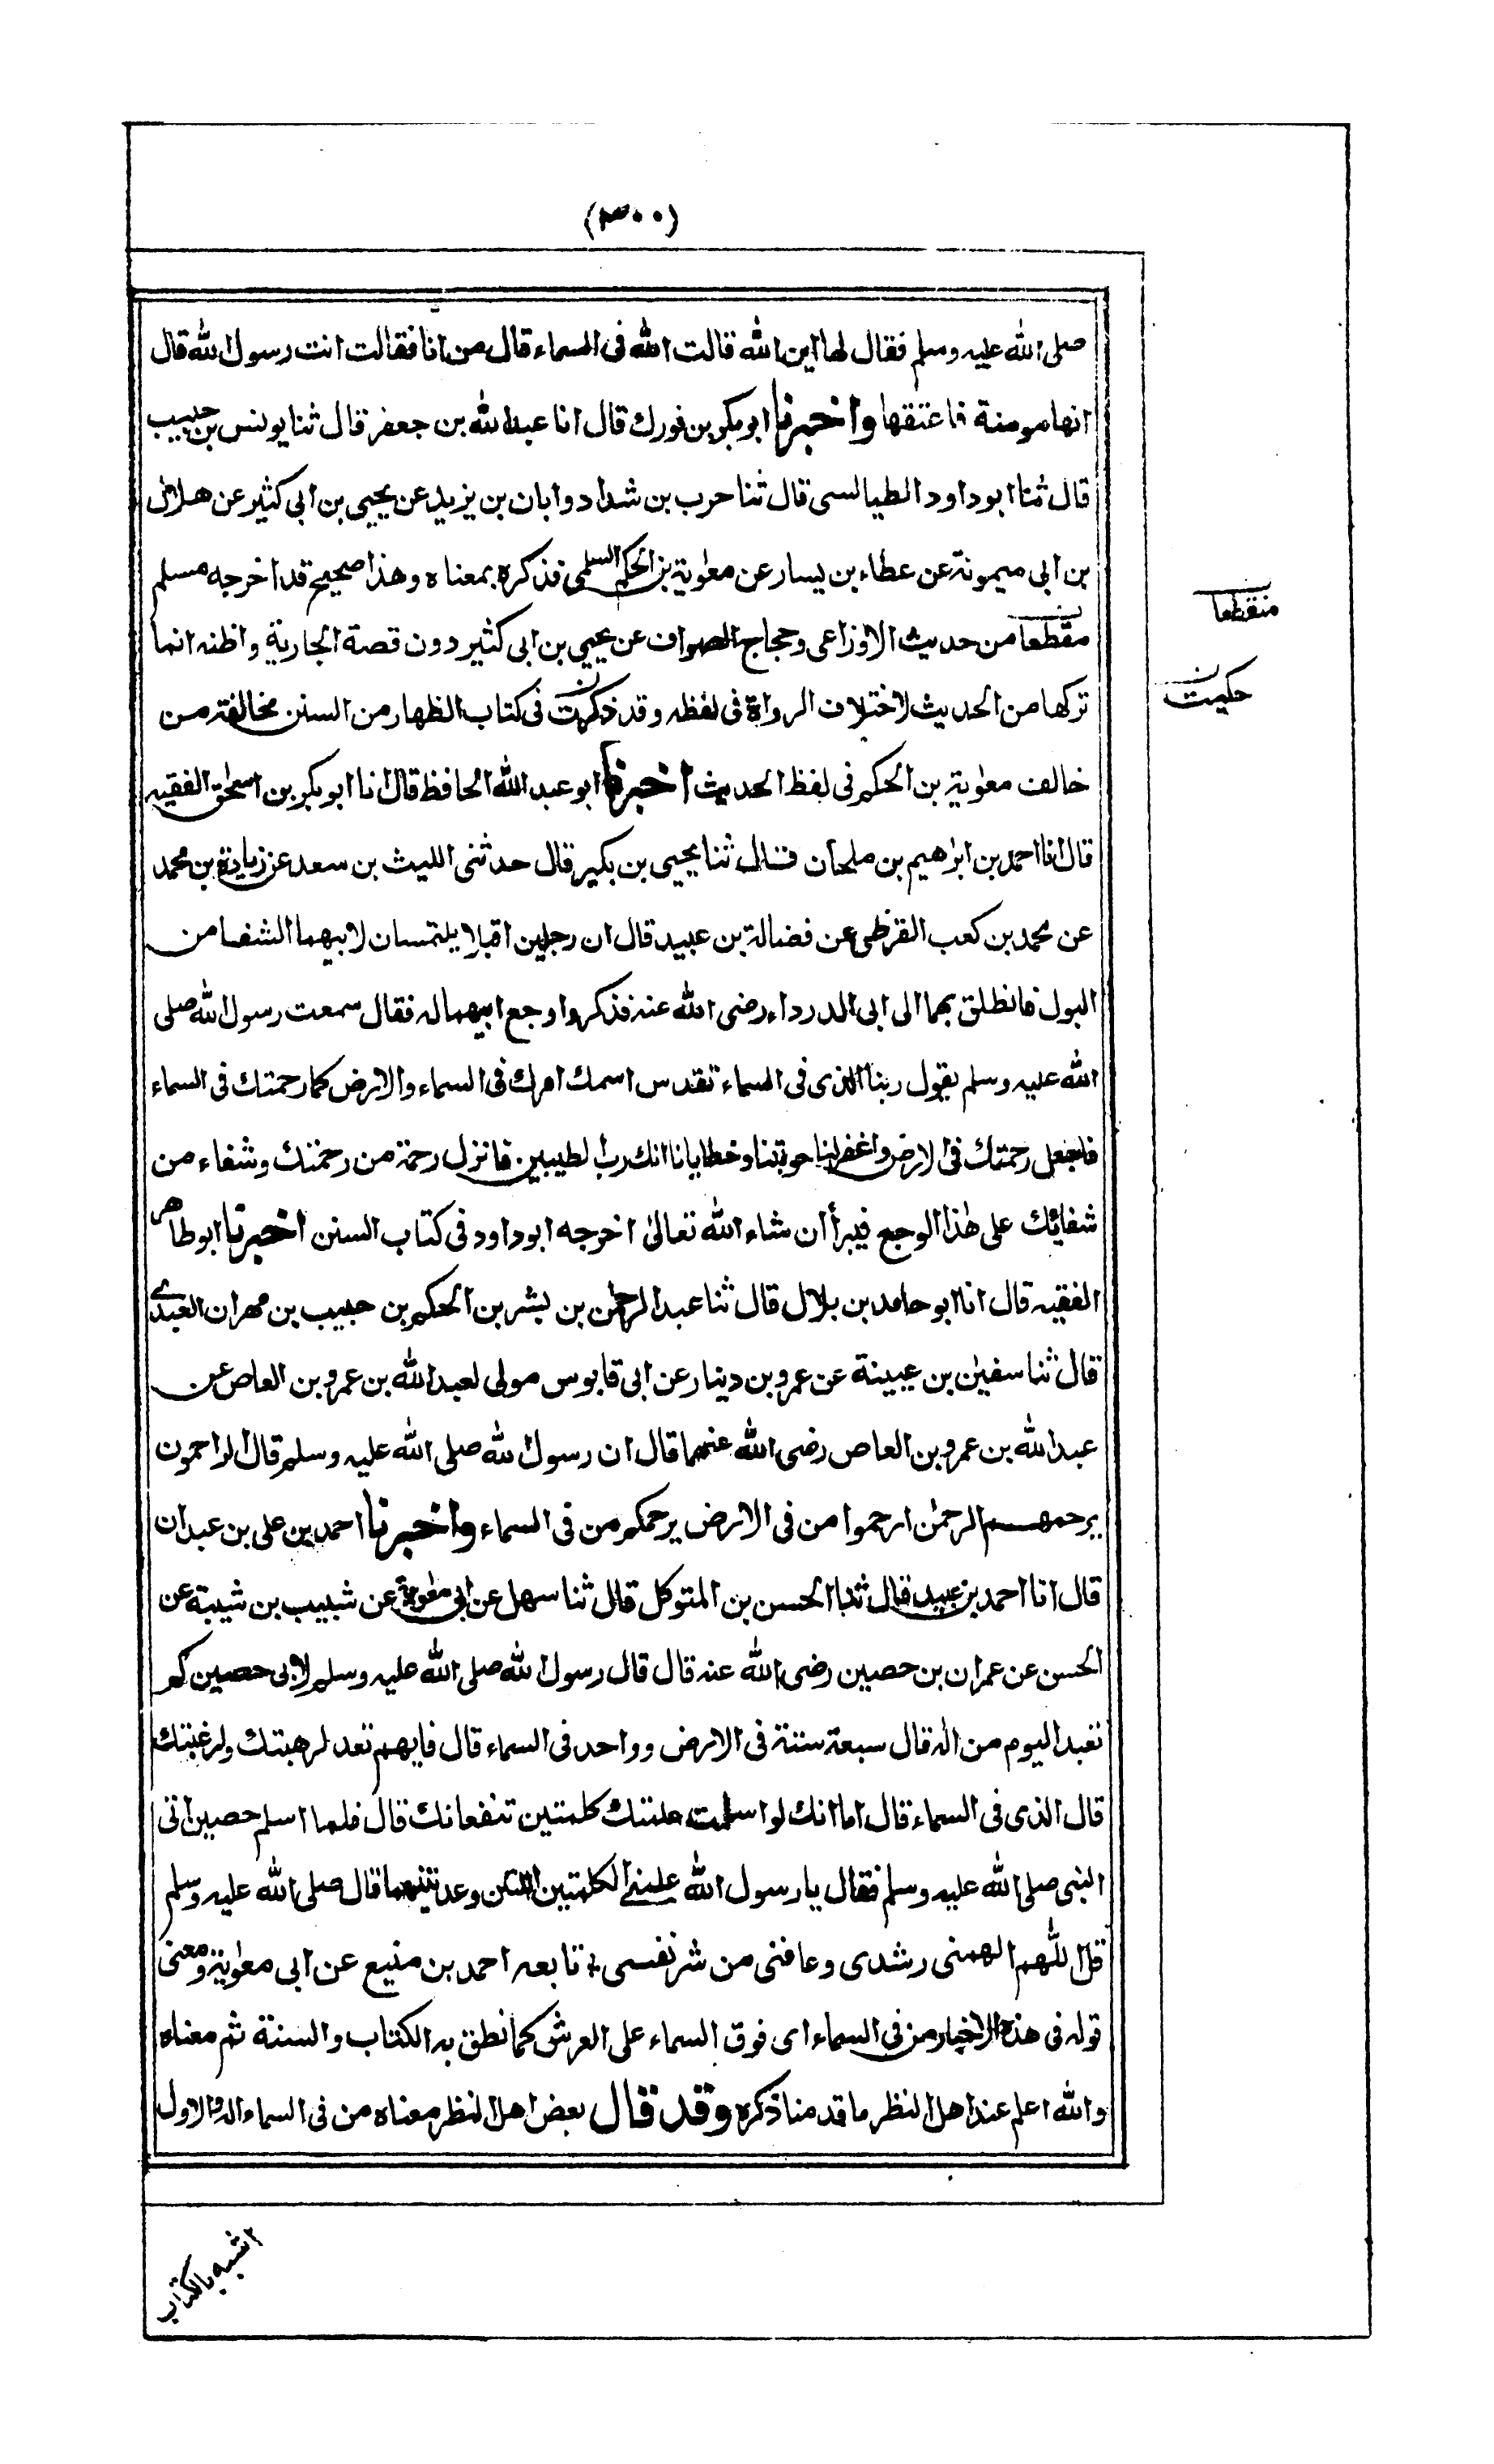 (٣٠٠)
صلى الله عليه وسلم فقال لها اين الله قالت الله فى السماء قال من انا فقالت انت رسول الله قال
انها مومنة فاعتقها واخبرنا ابو بكر بن فورك قال انا عبد الله بن جعفر قال ثنا يونس بن حبيب
قال ثنا ابو داود الطيالسى قال ثنا حرب بن شداد وابان بن يزيد عن يحيى بن ابى كثير عن هلال
بن ابى ميمونة عن عطاء بن يسار عن معٰوية بن الحكم السلمى فذكره بمعناه وهذا صحيح قد اخرجه مسلم
مقطعا من حديث الاوزاعى وحجاج الصواف عن يحيى بن ابى كثير دون قصة الجارية واظنه انما
منقطعا
تركها من الحديث لاختلاف الرواة فى لفظه وقد ذكرت فى كتاب الظهار من السنن مخالفة من
حكيت
خالف معٰوية بن الحكم فى لفظ الحديث اخبرنا ابو عبد الله الحافظ قال انا ابو بكر بن اسحٰق الفقيه
قال انا احمد بن ابراهيم بن ملحان قال ثنا يحيى بن بكير قال حدثنى الليث بن سعد عن زيادة بن محمد
عن محمد بن كعب القرظى عن فضالة بن عبيد قال ان رجلين اقبلا يلتمسان لابيهما الشفا من
البول فانطلق بهما الى ابى الدرداء رضى الله عنه فذكروا وجع ابيهما له فقال سمعت رسول الله صلى
الله عليه وسلم يقول ربنا الذى فى السماء تقدس اسمك امرك فى السماء والارض كما رحمتك فى السماء
فاجعل رحمتك فى الارض واغفر لنا حوبتنا وخطايانا انك رب الطيبين فانزل رحمة من رحمتك وشفاء من
شفائك على هٰذا الوجع فيبرأ ان شاء الله تعالىٰ اخرجه ابو داود فى كتاب السنن اخبرنا ابو طاهر
الفقيه قال انا ابو حامد بن بلال قال ثنا عبد الرحمٰن بن بشر بن الحكم بن حبيب بن مهران العبدى
قال ثنا سفيٰن بن عيينة عن عمرو بن دينار عن ابى قابوس مولى لعبد الله بن عمرو بن العاص عن
عبد الله بن عمرو بن العاص رضى الله عنهما قال ان رسول الله صلى الله عليه وسلم قال الراحمون
يرحمهم الرحمٰن ارحموا من فى الارض يرحمكم من فى السماء واخبرنا احمد بن على بن عبدان
قال انا احمد بن عبيد قال ثنا الحسن بن المتوكل قال ثنا سهل عن ابى معٰوية عن شبيب بن شيبة عن
الحسن عن عمران بن حصين رضى الله عنه قال قال رسول الله صلى الله عليه وسلم لابى حصين كم
تعبد اليوم من اله قال سبعة ستة فى الارض وواحد فى السماء قال فايهم تعد لرهبتك ولرغبتك
قال الذى فى السماء قال اما انك لو اسلمت علمتك كلمتين تنفعانك قال فلما اسلم حصين اتى
النبى صلى الله عليه وسلم فقال يا رسول الله علمنى الكلمتين اللتين وعدتنيهما قال صلى الله عليه وسلم
قل اللّٰهم الهمنى رشدى وعافنى من شر نفسى تابعه احمد بن منيع عن ابى معٰوية ومعنى
قوله فى هذه الاخبار من فى السماء اى فوق السماء على العرش كما نطق به الكتاب والسنة ثم معناه
والله اعلم عند اهل النظر ما قدمنا ذكره وقد قال بعض اهل النظر معناه من فى السماء اله والاول
اشبه بالكتاب